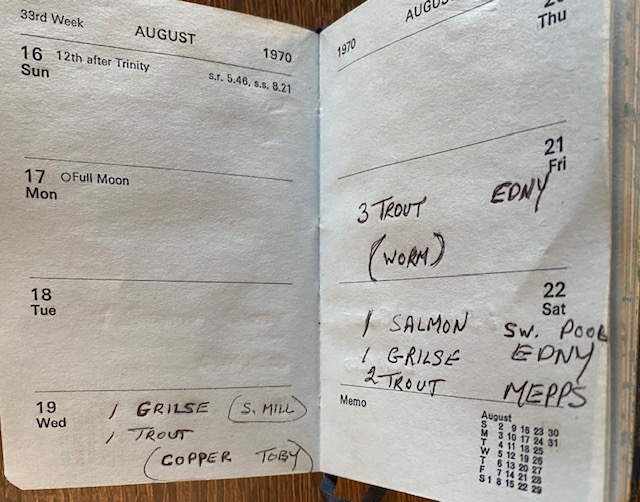 33rd Week AUGUST 1970
16 12th after Trinity
Sun s.r. 5.46, s.s. 8.21
17 ○Full Moon
Mon
18
Tue
19 1 GRILSE (S. MILL)
Wed 1 TROUT
(COPPER TOBY)
1970 AUGUS
Thu
21
Fri
3 TROUT EDNY
(WORM)
22
Sat
1 SALMON SW. POOL
1 GRILSE EDNY
2 TROUT MEPPS
Memo
August
S 2 9 16 23 30
M 3 10 17 24 31
T 4 11 18 25
W 5 12 19 26
T 6 13 20 27
F 7 14 21 28
S 1 8 15 22 29